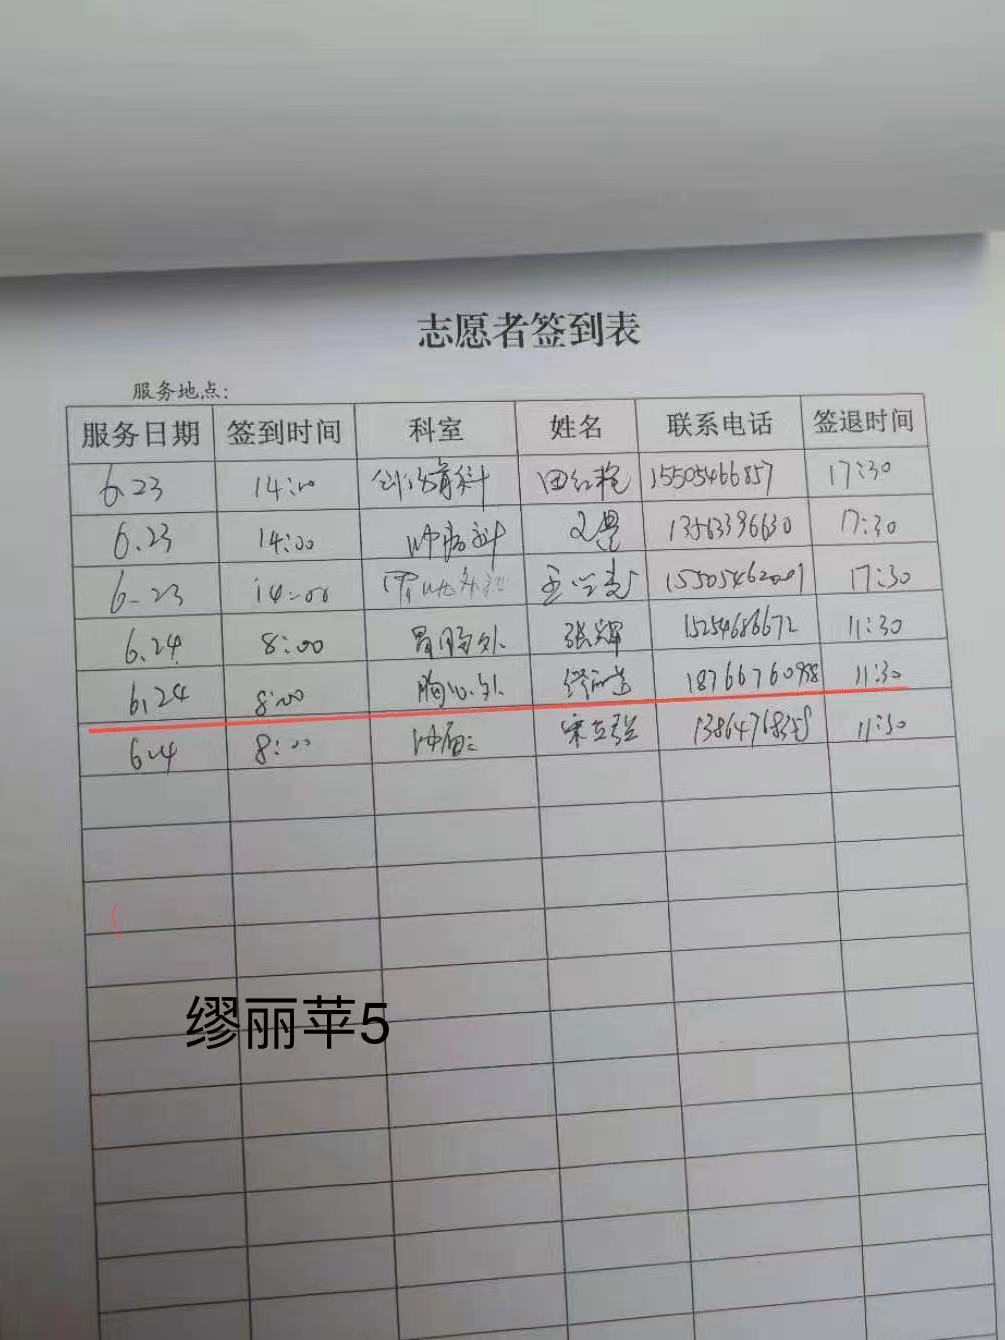 志愿者签到表
服务地点:
服务日期 签到时间 科室 姓名 联系电话 签退时间
6.23 14:00 创伤骨科 田红艳 15505466857 17:30
6.23 14:00 肿瘤科 13563396630 17:30
6.23 14:00 15505462001 17:30
6.24 8:00 胃肠外 张辉 15254686672 11:30
6.24 8:00 胸心外 缪丽苹 18766760998 11:30
6.24 8:00 11:30
缪丽苹5